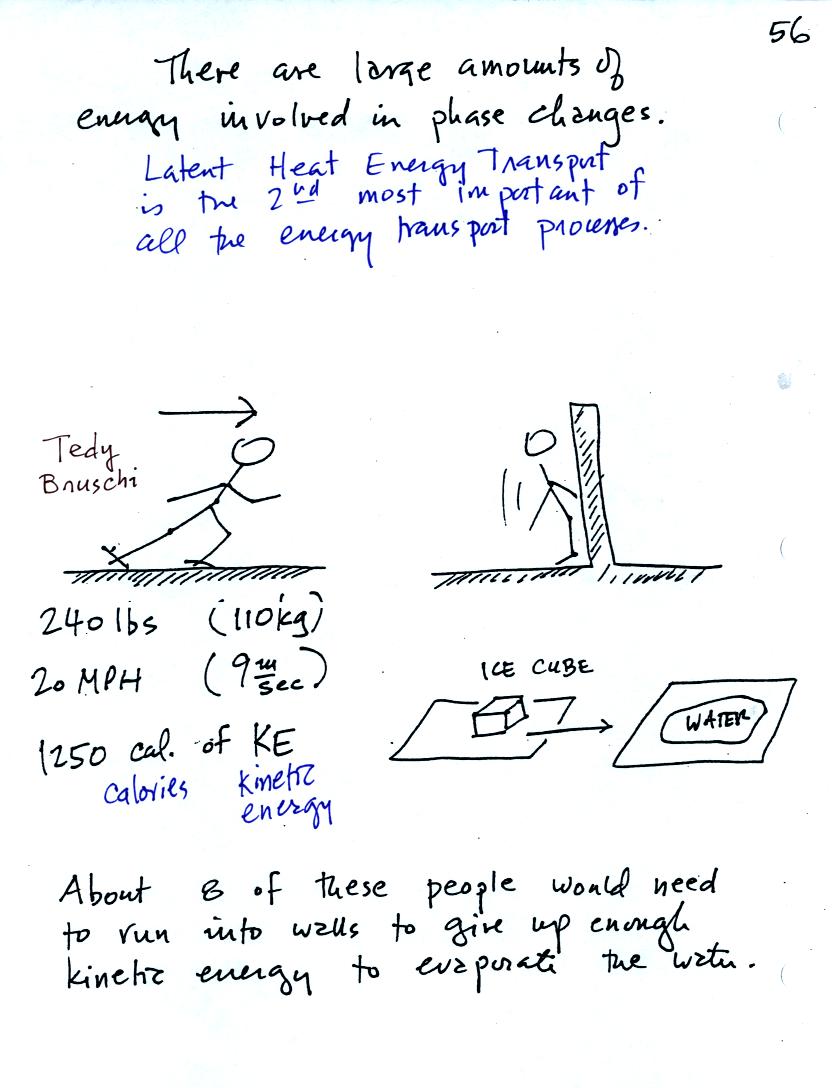 56
There are large amounts of
energy involved in phase changes.
Latent Heat Energy Transport
is the 2nd most important of
all the energy transport processes.
Tedy
Bruschi
240 lbs (110 kg)
20 MPH (9 m/sec)
1250 cal. of KE
calories kinetic
energy
ICE CUBE
WATER
About 8 of these people would need
to run into walls to give up enough
kinetic energy to evaporate the water.